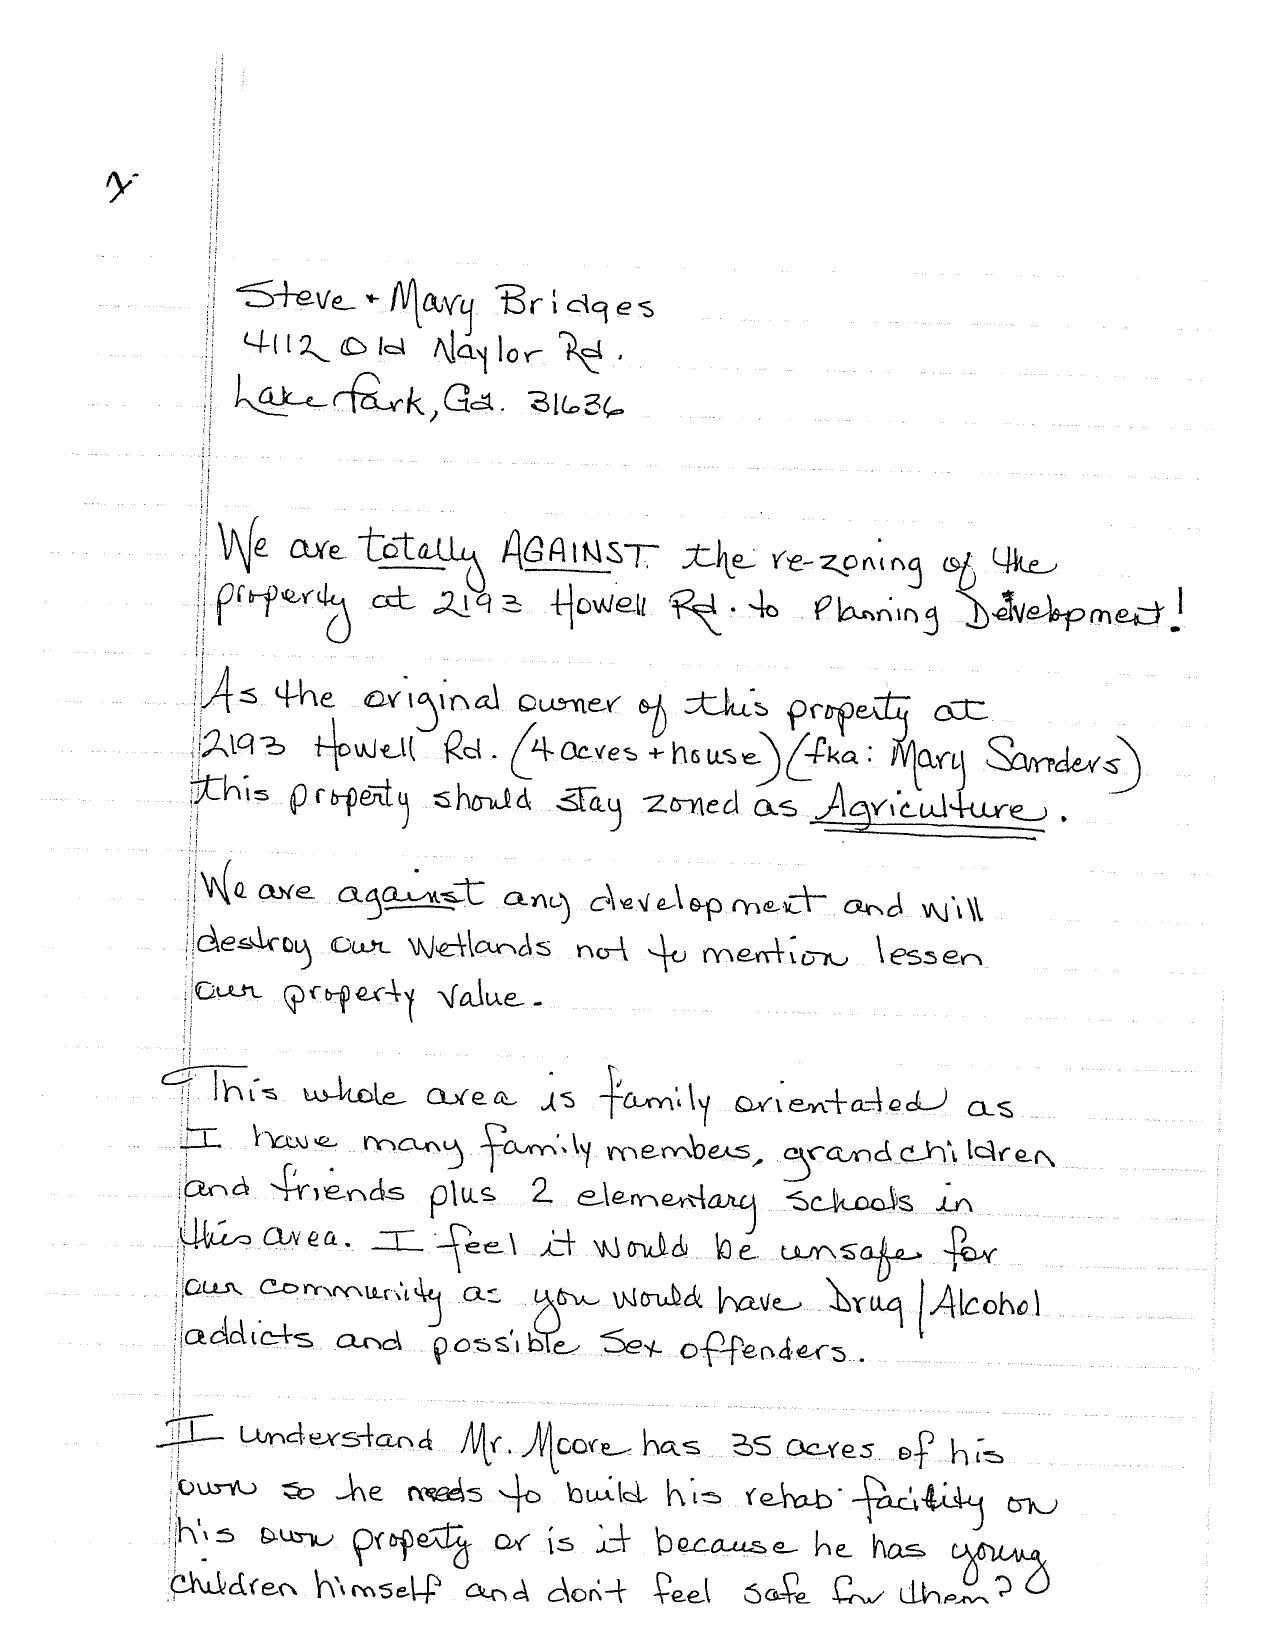 2.
Steve + Mary Bridges
4112 Old Naylor Rd.
Lake Park, Ga. 31636
We are totally AGAINST the re-zoning of the
property at 2193 Howell Rd. to Planning Development!
As the original owner of this property at
2193 Howell Rd. (4 acres + house) (fka: Mary Sanders)
this property should stay zoned as Agriculture.
We are against any development and will
destroy our wetlands not to mention lessen
our property value.
This whole area is family orientated as
I have many family members, grandchildren
and friends plus 2 elementary schools in
this area. I feel it would be unsafe for
our community as you would have Drug/Alcohol
addicts and possible Sex offenders.
I understand Mr. Moore has 35 acres of his
own so he needs to build his rehab facility on
his own property or is it because he has young
children himself and don't feel safe for them?